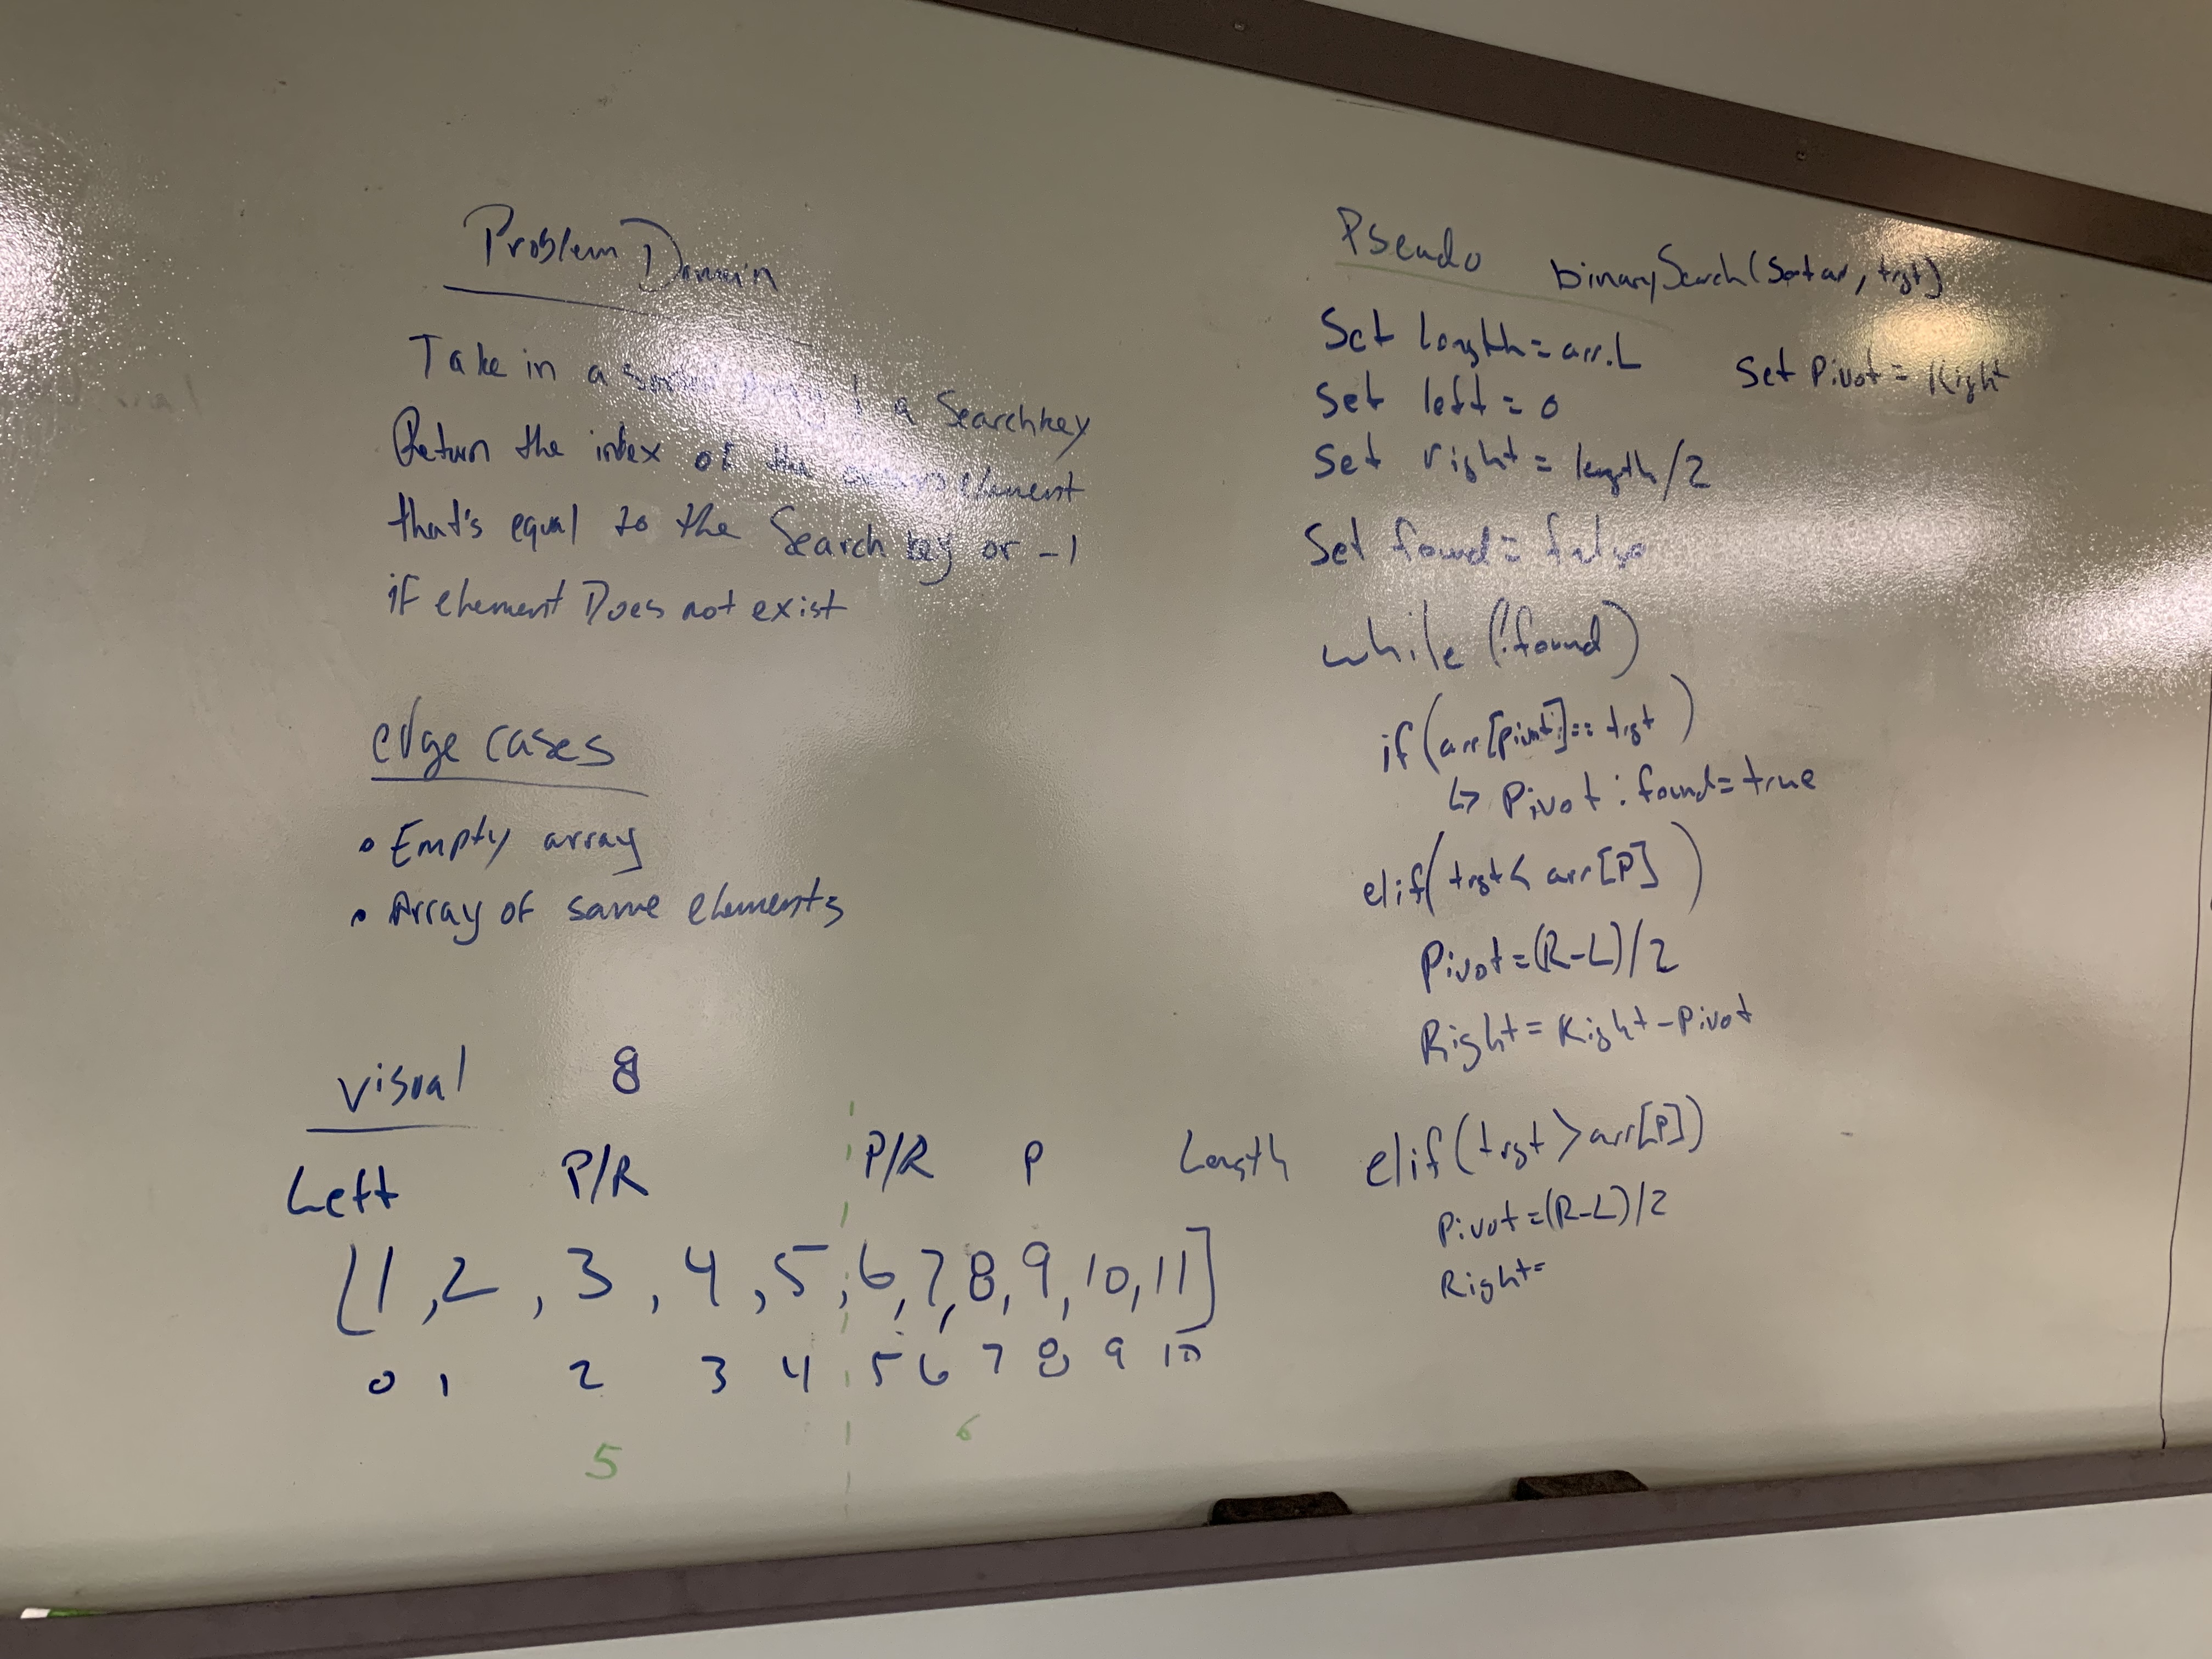 Problem Domain
Take in a sorted array & a Searchkey
Return the index of the element
that's equal to the Search key or -1
if element Does not exist
edge cases
• Empty array
• Array of same elements
visual 8
Left P/R P/R P Length
[1, 2, 3, 4, 5, 6, 7, 8, 9, 10, 11]
0 1 2 3 4 5 6 7 8 9 10
5 6
Pseudo binarySearch(Sortar, trgt)
Set length = arr.L Set Pivot = Right
Set left = 0
Set right = length/2
Set found = false
while (!found)
if (arr[pivot] == trgt)
↳ Pivot : found = true
elif (trgt < arr[P])
Pivot = (R-L)/2
Right = Right - Pivot
elif (trgt > arr[P])
Pivot = (R-L)/2
Right =